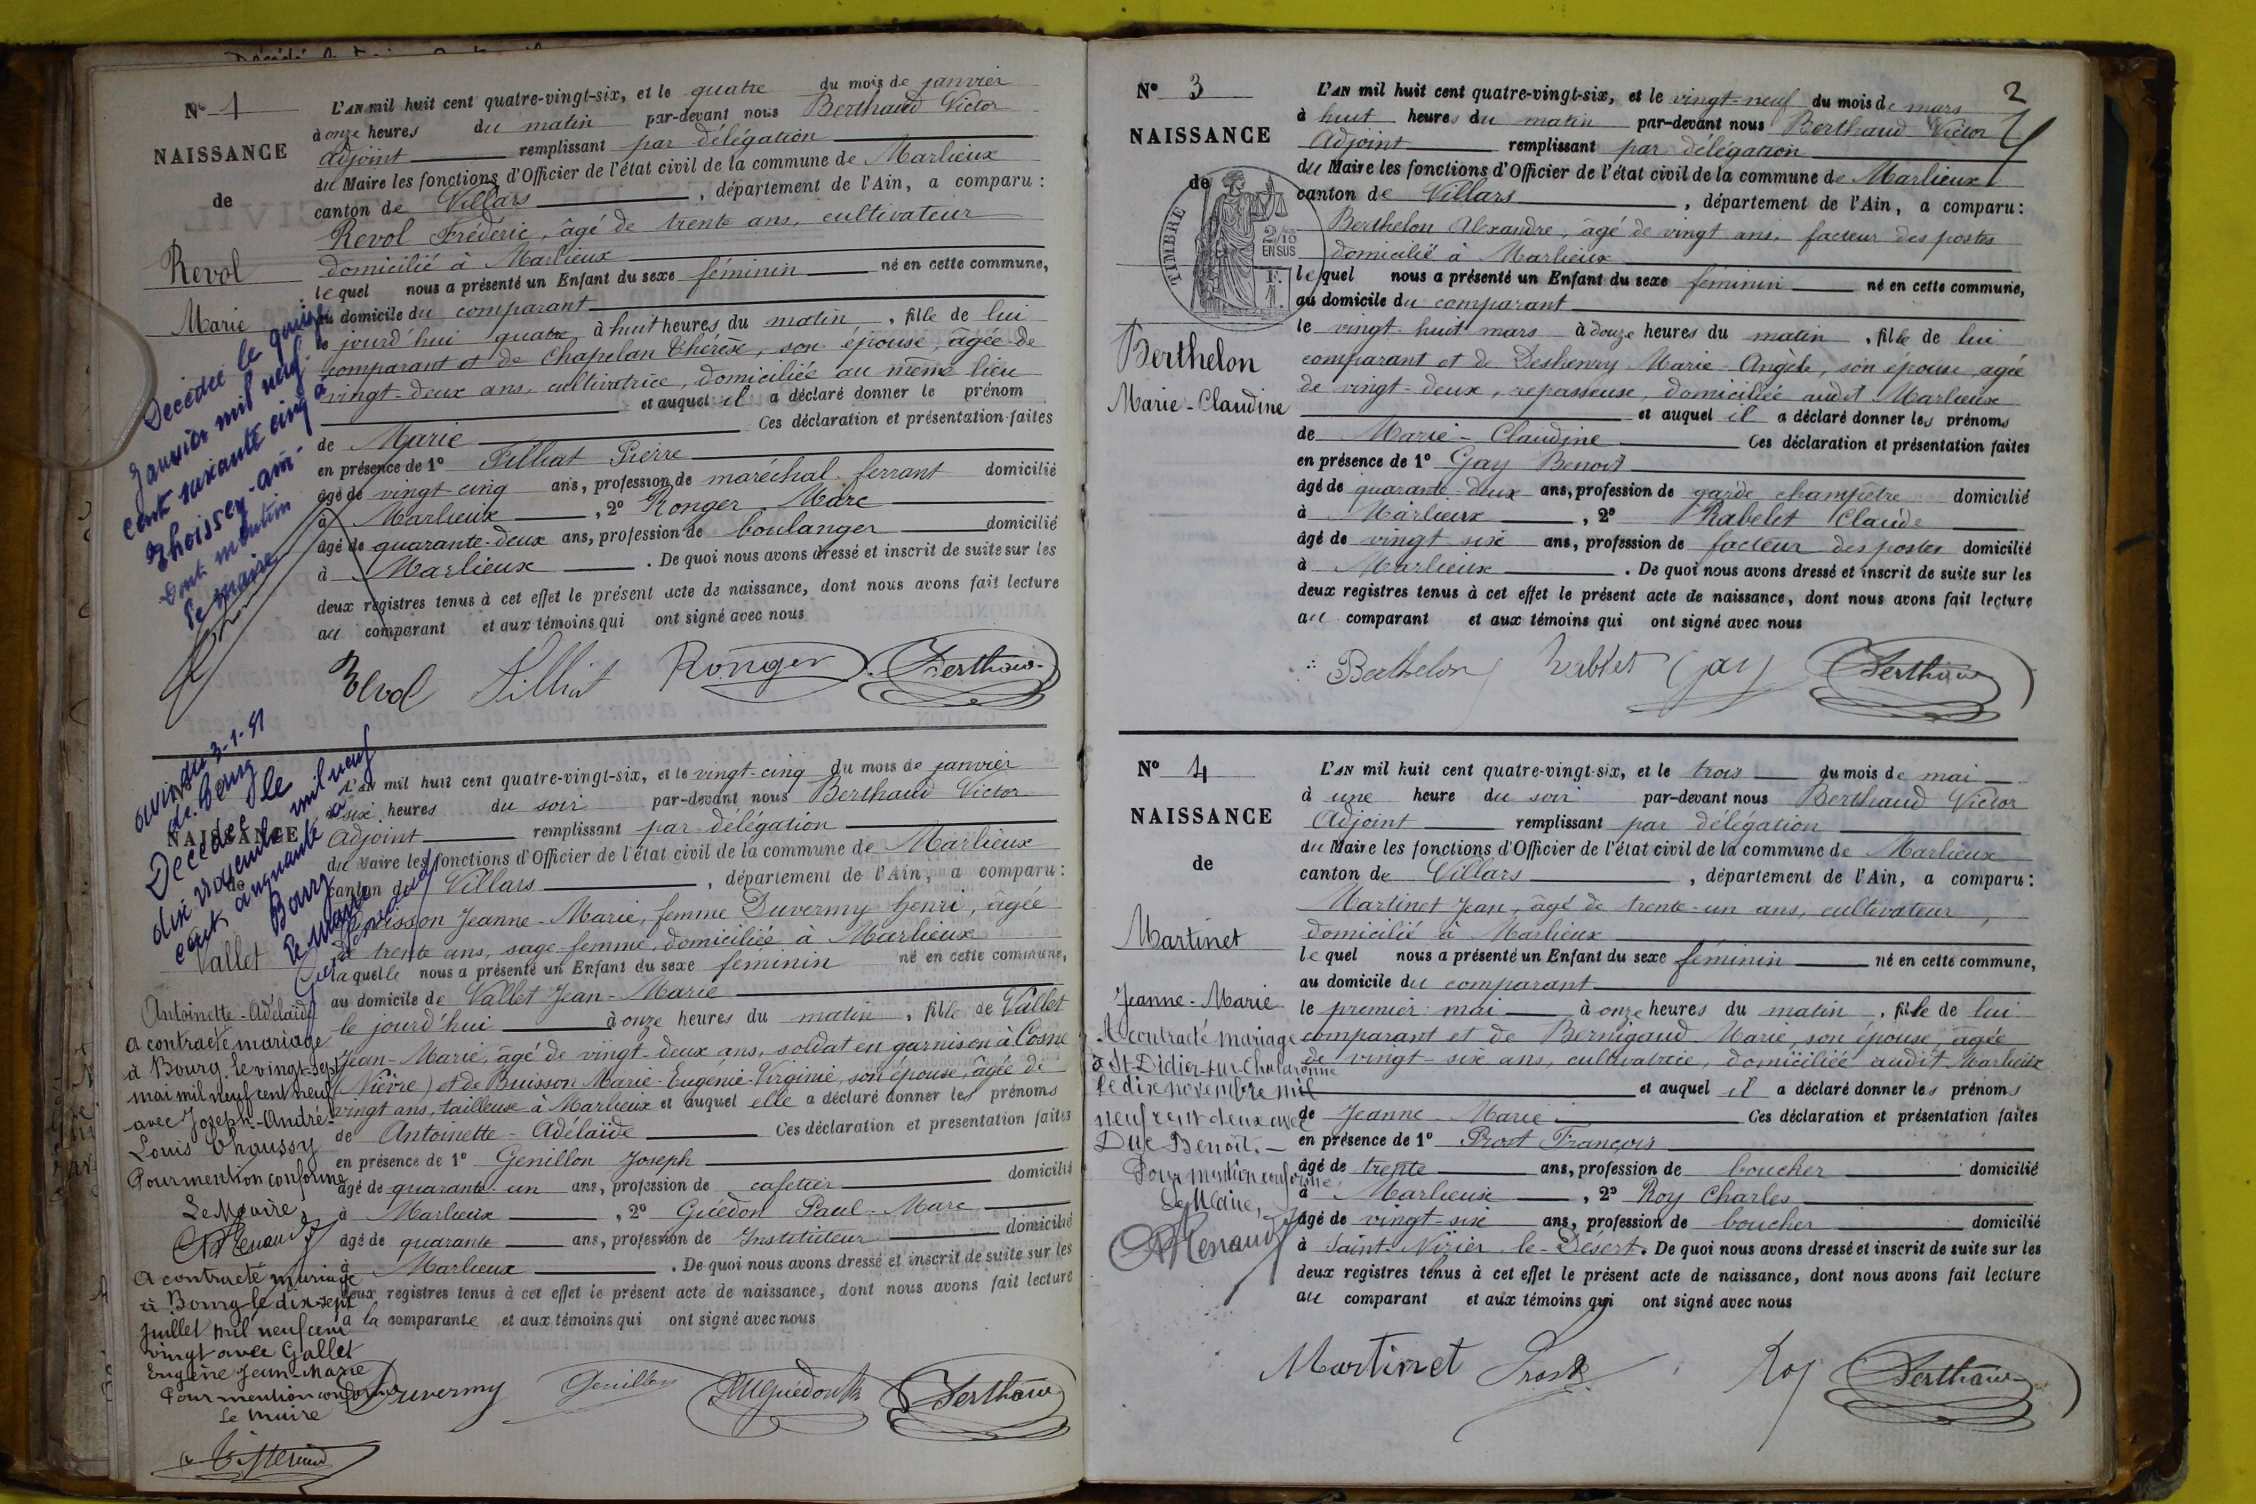 Nº 1
NAISSANCE
de
Revol
Marie
Décédée le quinze
Janvier mil neuf
cent soixante cinq à
Thoissey - Ain -
Dont mention
Le maire
L'AN mil huit cent quatre-vingt-six, et le quatre du mois de janvier
à onze heures du matin par-devant nous Berthaud Victor
Adjoint remplissant par délégation
du Maire les fonctions d'Officier de l'état civil de la commune de Marlieux
canton de Villars, département de l'Ain, a comparu :
Revol Frédéric, âgé de trente ans, cultivateur
domicilié à Marlieux
lequel nous a présenté un Enfant du sexe féminin né en cette commune,
au domicile du comparant
le jourd'hui quatre à huit heures du matin, fille de lui
comparant et de Chapelan Thérèse, son épouse, âgée de
vingt-deux ans, cultivatrice, domiciliée au même lieu
et auquel il a déclaré donner le prénom
de Marie Ces déclaration et présentation faites
en présence de 1º Filliat Pierre
âgé de vingt-cinq ans, profession de maréchal ferrant domicilié
à Marlieux, 2º Ronger Marc
âgé de quarante-deux ans, profession de boulanger domicilié
à Marlieux. De quoi nous avons dressé et inscrit de suite sur les
deux registres tenus à cet effet le présent acte de naissance, dont nous avons fait lecture
au comparant et aux témoins qui ont signé avec nous
Revol Filliat Ronger Berthaud
avis du 3-1-51
de Bourg
Décédée le
dix
mil neuf
cent cinquante à
Bourg
Le Maire
NAISSANCE
de
Vallet
Antoinette-Adélaïde
A contracté mariage
à Bourg, le vingt-sept
mai mil neuf cent neuf
avec Joseph-André-
Louis Chaussy
Pour mention conforme
Le Maire,
A contracté mariage
à Bourg le dix-sept
juillet mil neuf cent
vingt avec Gallet
Eugène Jean-Marie
Pour mention conforme
Le Maire
L'AN mil huit cent quatre-vingt-six, et le vingt-cinq du mois de janvier
à six heures du soir par-devant nous Berthaud Victor
Adjoint remplissant par délégation
du Maire les fonctions d'Officier de l'état civil de la commune de Marlieux
canton de Villars, département de l'Ain, a comparu :
Buisson Jeanne-Marie, femme Duvermy Henri, âgée
de trente ans, sage-femme, domiciliée à Marlieux
laquelle nous a présenté un Enfant du sexe féminin né en cette commune,
au domicile de Vallet Jean-Marie
le jourd'hui à onze heures du matin, fille de Vallet
Jean-Marie, âgé de vingt-deux ans, soldat en garnison à Cosne
(Nièvre) et de Buisson Marie-Eugénie-Virginie, son épouse, âgée de
vingt ans, tailleuse à Marlieux et auquel elle a déclaré donner les prénoms
de Antoinette-Adélaïde Ces déclaration et présentation faites
en présence de 1º Genillon Joseph
âgé de quarante-un ans, profession de cafetier domicilié
à Marlieux, 2º Guédon Paul-Marc
âgé de quarante ans, profession de Instituteur domicilié
à Marlieux. De quoi nous avons dressé et inscrit de suite sur les
deux registres tenus à cet effet le présent acte de naissance, dont nous avons fait lecture
à la comparante et aux témoins qui ont signé avec nous
Duvermy Genillon Guédon Berthaud
2
Nº 3
NAISSANCE
de
TIMBRE
2/10
EN SUS
Berthelon
Marie-Claudine
L'AN mil huit cent quatre-vingt-six, et le vingt-neuf du mois de mars
à huit heures du matin par-devant nous Berthaud Victor
Adjoint remplissant par délégation
du Maire les fonctions d'Officier de l'état civil de la commune de Marlieux
canton de Villars, département de l'Ain, a comparu :
Berthelon Alexandre, âgé de vingt ans, facteur des postes
domicilié à Marlieux
lequel nous a présenté un Enfant du sexe féminin né en cette commune,
au domicile du comparant
le vingt-huit mars à douze heures du matin, fille de lui
comparant et de Deshenry Marie-Angèle, son épouse, âgée
de vingt-deux, repasseuse, domiciliée audit Marlieux
et auquel il a déclaré donner les prénoms
de Marie-Claudine Ces déclaration et présentation faites
en présence de 1º Gay Benoit
âgé de quarante-deux ans, profession de garde champêtre domicilié
à Marlieux, 2º Rabelet Claude
âgé de vingt six ans, profession de facteur des postes domicilié
à Marlieux. De quoi nous avons dressé et inscrit de suite sur les
deux registres tenus à cet effet le présent acte de naissance, dont nous avons fait lecture
au comparant et aux témoins qui ont signé avec nous
Berthelon Gay Berthaud
Nº 4
NAISSANCE
de
Martinet
Jeanne-Marie
A contracté mariage
à St-Didier-sur-Chalaronne
le dix novembre mil
neuf cent deux avec
Duc Benoît.
Pour mention conforme
Le Maire,
L'AN mil huit cent quatre-vingt-six, et le trois du mois de mai
à une heure du soir par-devant nous Berthaud Victor
Adjoint remplissant par délégation
du Maire les fonctions d'Officier de l'état civil de la commune de Marlieux
canton de Villars, département de l'Ain, a comparu :
Martinet Jean, âgé de trente-un ans, cultivateur,
domicilié à Marlieux
lequel nous a présenté un Enfant du sexe féminin né en cette commune,
au domicile du comparant
le premier mai à onze heures du matin, fille de lui
comparant et de Bernigaud Marie, son épouse, âgée
de vingt-six ans, cultivatrice, domiciliée audit Marlieux
et auquel il a déclaré donner les prénoms
de Jeanne Marie Ces déclaration et présentation faites
en présence de 1º Prost François
âgé de trente ans, profession de boucher domicilié
à Marlieux, 2º Roy Charles
âgé de vingt-six ans, profession de boucher domicilié
à Saint-Nizier-le-Désert. De quoi nous avons dressé et inscrit de suite sur les
deux registres tenus à cet effet le présent acte de naissance, dont nous avons fait lecture
au comparant et aux témoins qui ont signé avec nous
Martinet Prost Roy Berthaud